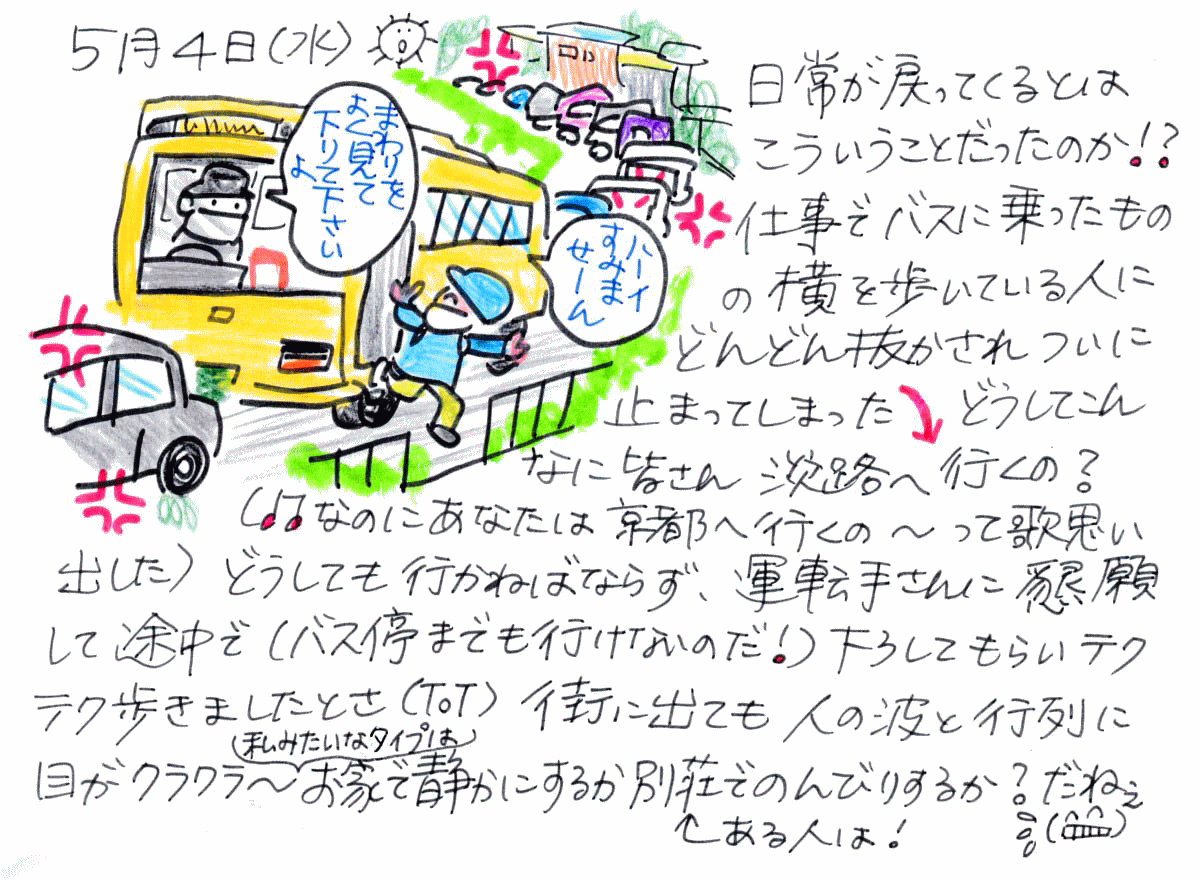 5月4日(水)
まわりを
よく見て
下りて下さい
よ
ハーイ
すみま
せーん
日常が戻ってくるとは
こういうことだったのか!?
仕事でバスに乗ったもの
の横を歩いている人に
どんどん抜かされついに
止まってしまった どうしてこん
なに皆さん淡路へ行くの?
(♪♪なのにあなたは京都へ行くの〜って歌思い
出した)どうしても行かねばならず、運転手さんに懇願
して途中で(バス停までも行けないのだ!)下ろしてもらいテク
テク歩きましたとさ(ToT)街に出ても人の波と行列に
(私みたいなタイプは)
目がクラクラ〜お家で静かにするか別荘でのんびりするか?だねぇ
↑ある人は!